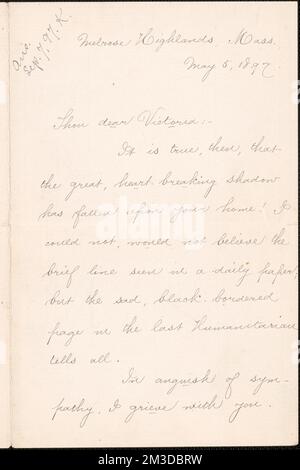 Ans.
Sep. 7, 97. K.
Melrose Highlands, Mass.
May 5, 1897.
Thou dear Victoria:-
It is true, then, that
the great, heart-breaking shadow
has fallen upon your home! I
could not, would not believe the
brief line seen in a daily paper,
but the sad, black-bordered
page in the last Humanitarian
tells all.
In anguish of sym-
pathy, I grieve with you.
alamy
Image ID: 2M3DBRW
www.alamy.com